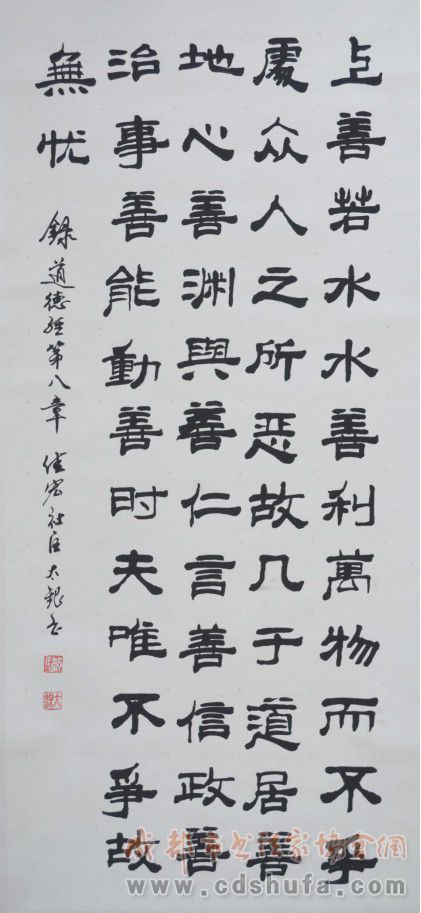 上善若水水善利萬物而不爭
處众人之所恶故几于道居善
地心善渊與善仁言善信政善
治事善能動善时夫唯不爭故
無忧
錄道德经第八章
成都市书法家协会網
www.cdshufa.com